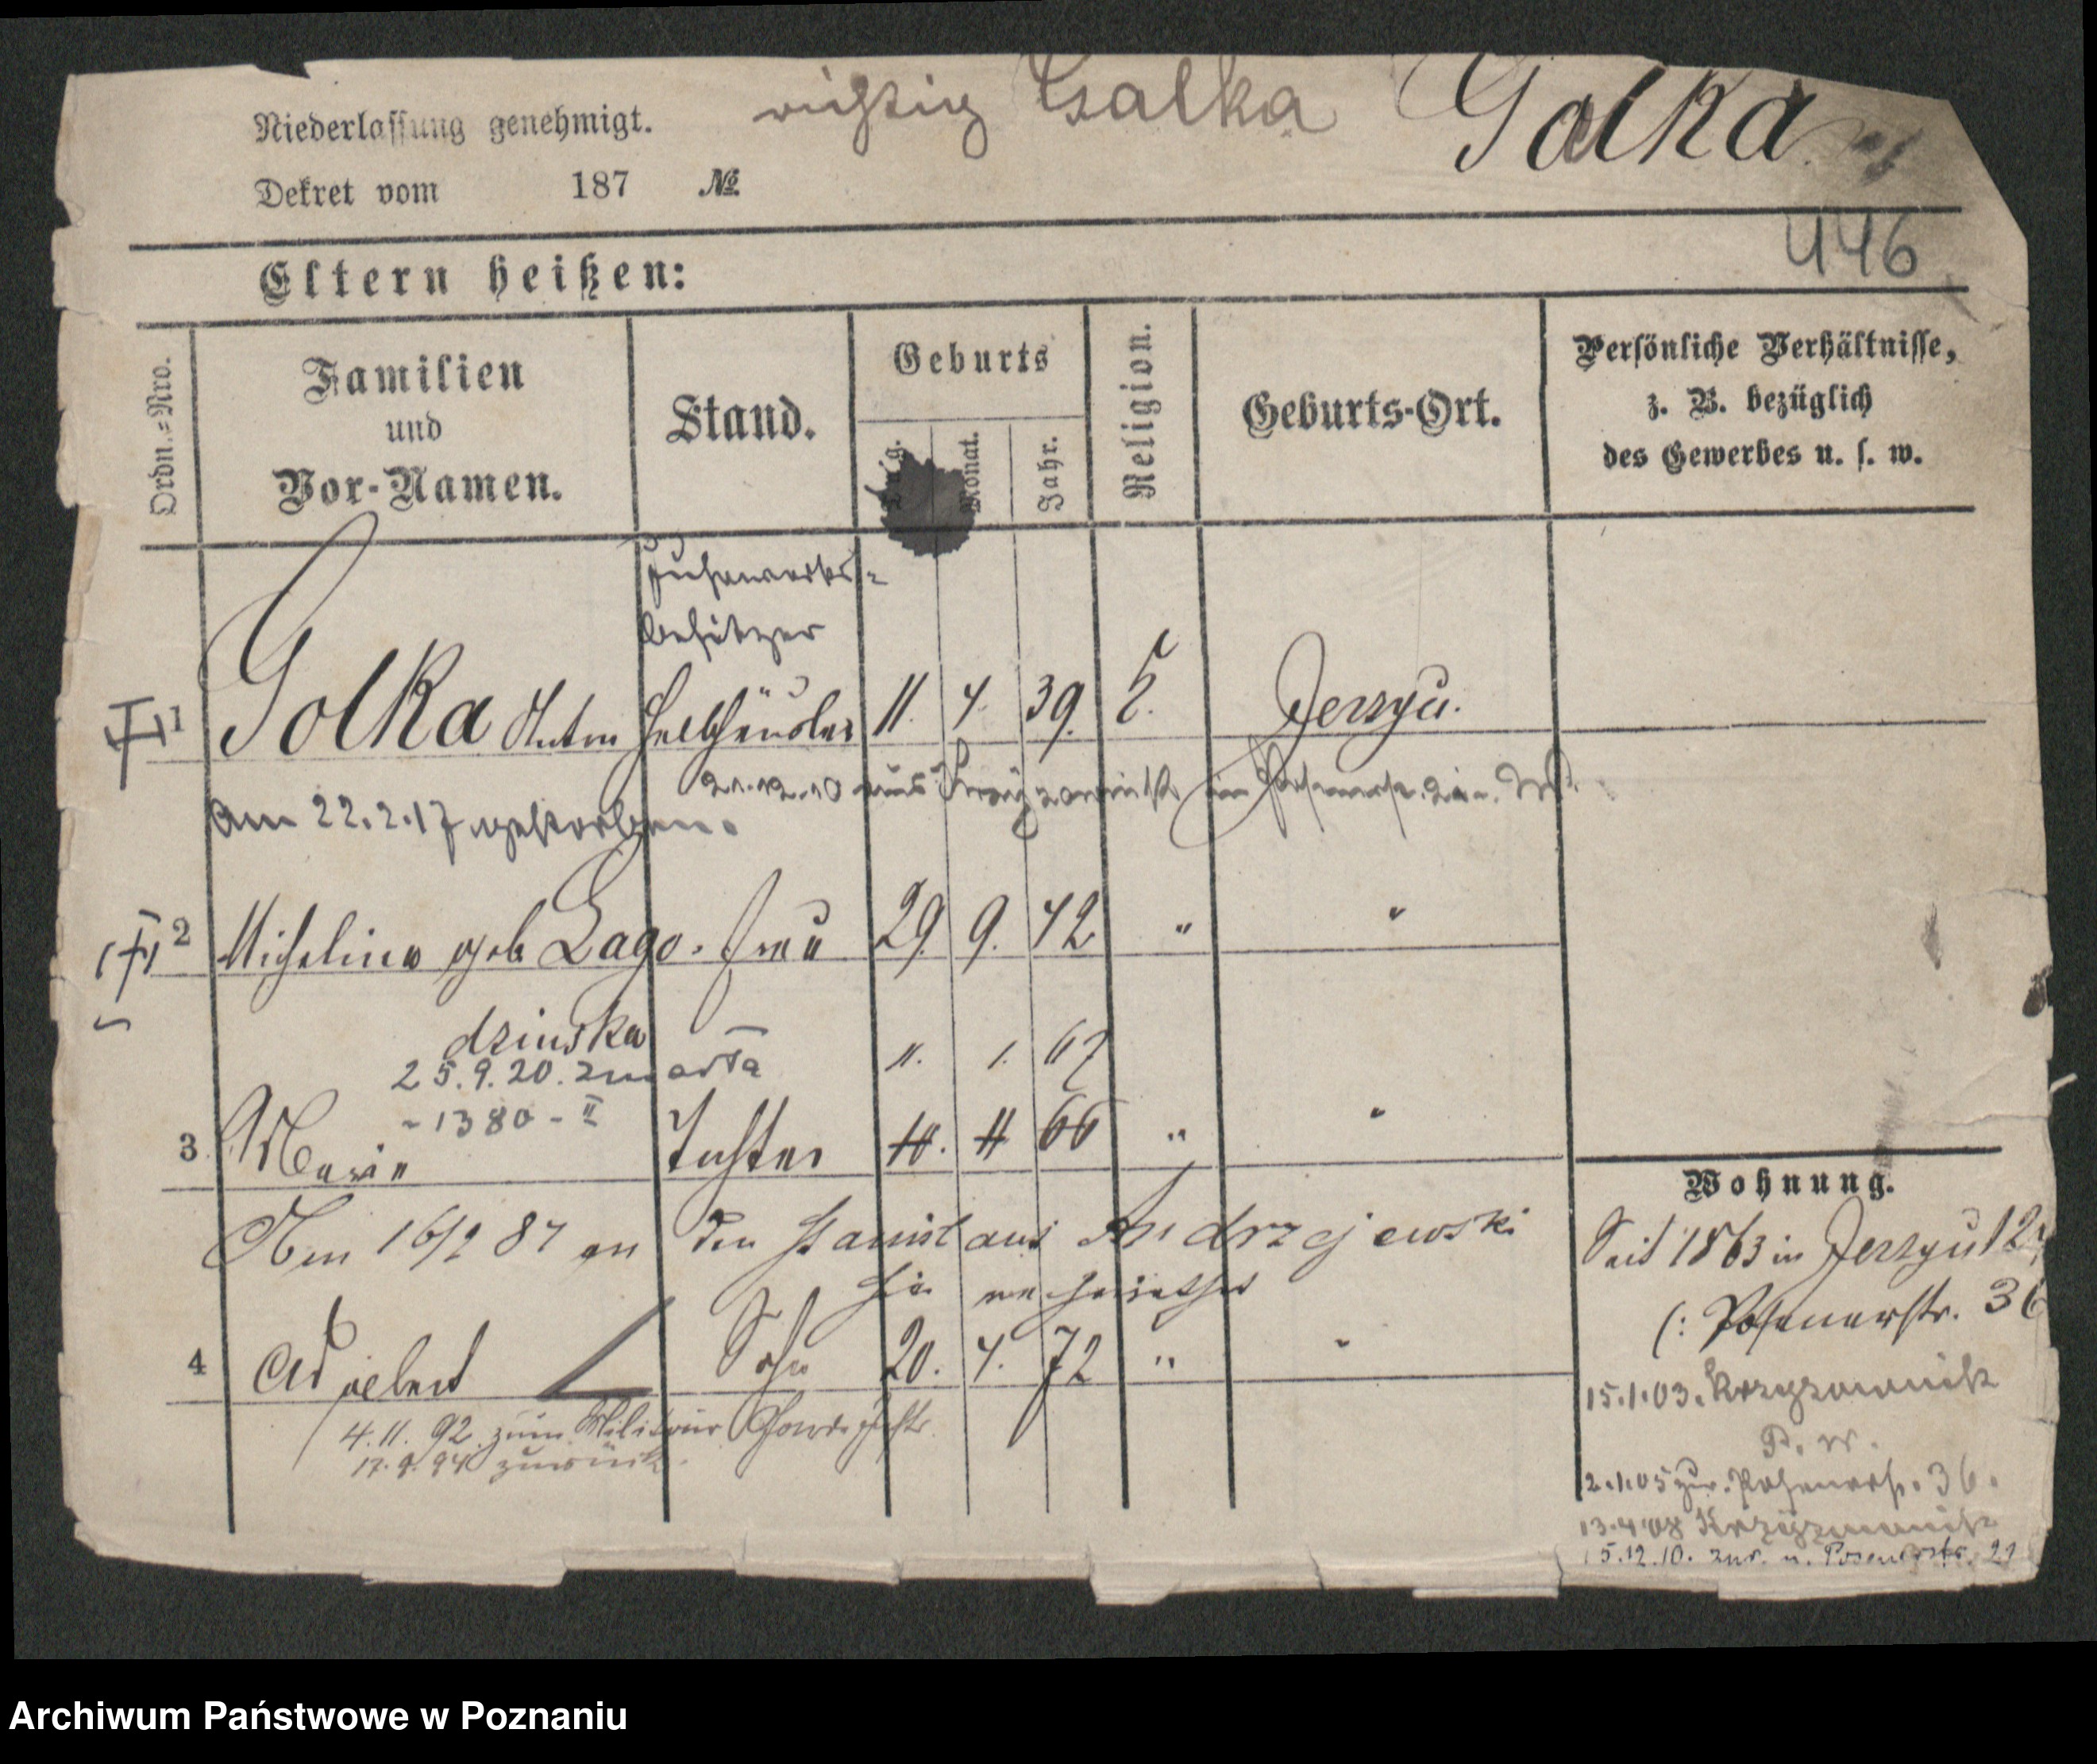 Niederlassung genehmigt.
richtig Galka
Golka
Dekret vom 187 №
446
Eltern heißen:
Ordn.-Nro.
Familien
und
Vor-Namen.
Stand.
Geburts
Tag.
Monat.
Jahr.
Religion.
Geburts-Ort.
Persönliche Verhältnisse,
z. B. bezüglich
des Gewerbes u. s. w.
Fuhrwerks-
besitzer
1 Golka Anton Halbhäusler 11. 4. 39. k. Jerzyce.
21.12.10 aus
Am 22.2.17 gestorben.
2 Michalina geb Lago- Frau 29. 9. 42 " "
dzinska
25.9.20. zmarła
-1380-II
11. 1. 67
3 Marie Tochter 10. 11 66 " "
Am 16/2 87 an den Stanislaus Andrzejewski
hie verheirathet
4 Adalbert Sohn 20. 4. 72 " "
4.11.92. zum Militair
17.9.94 zurück.
Wohnung.
Seit 1863 in Jerzyce 12
(: Posenerstr. 36
15.1.03. Krzyzownik
P. W.
2.1.05 zur. Posenerstr. 36.
13.4.08 Krzyzownik
15.12.10. zur. n. Posenerstr. 21
Archiwum Państwowe w Poznaniu